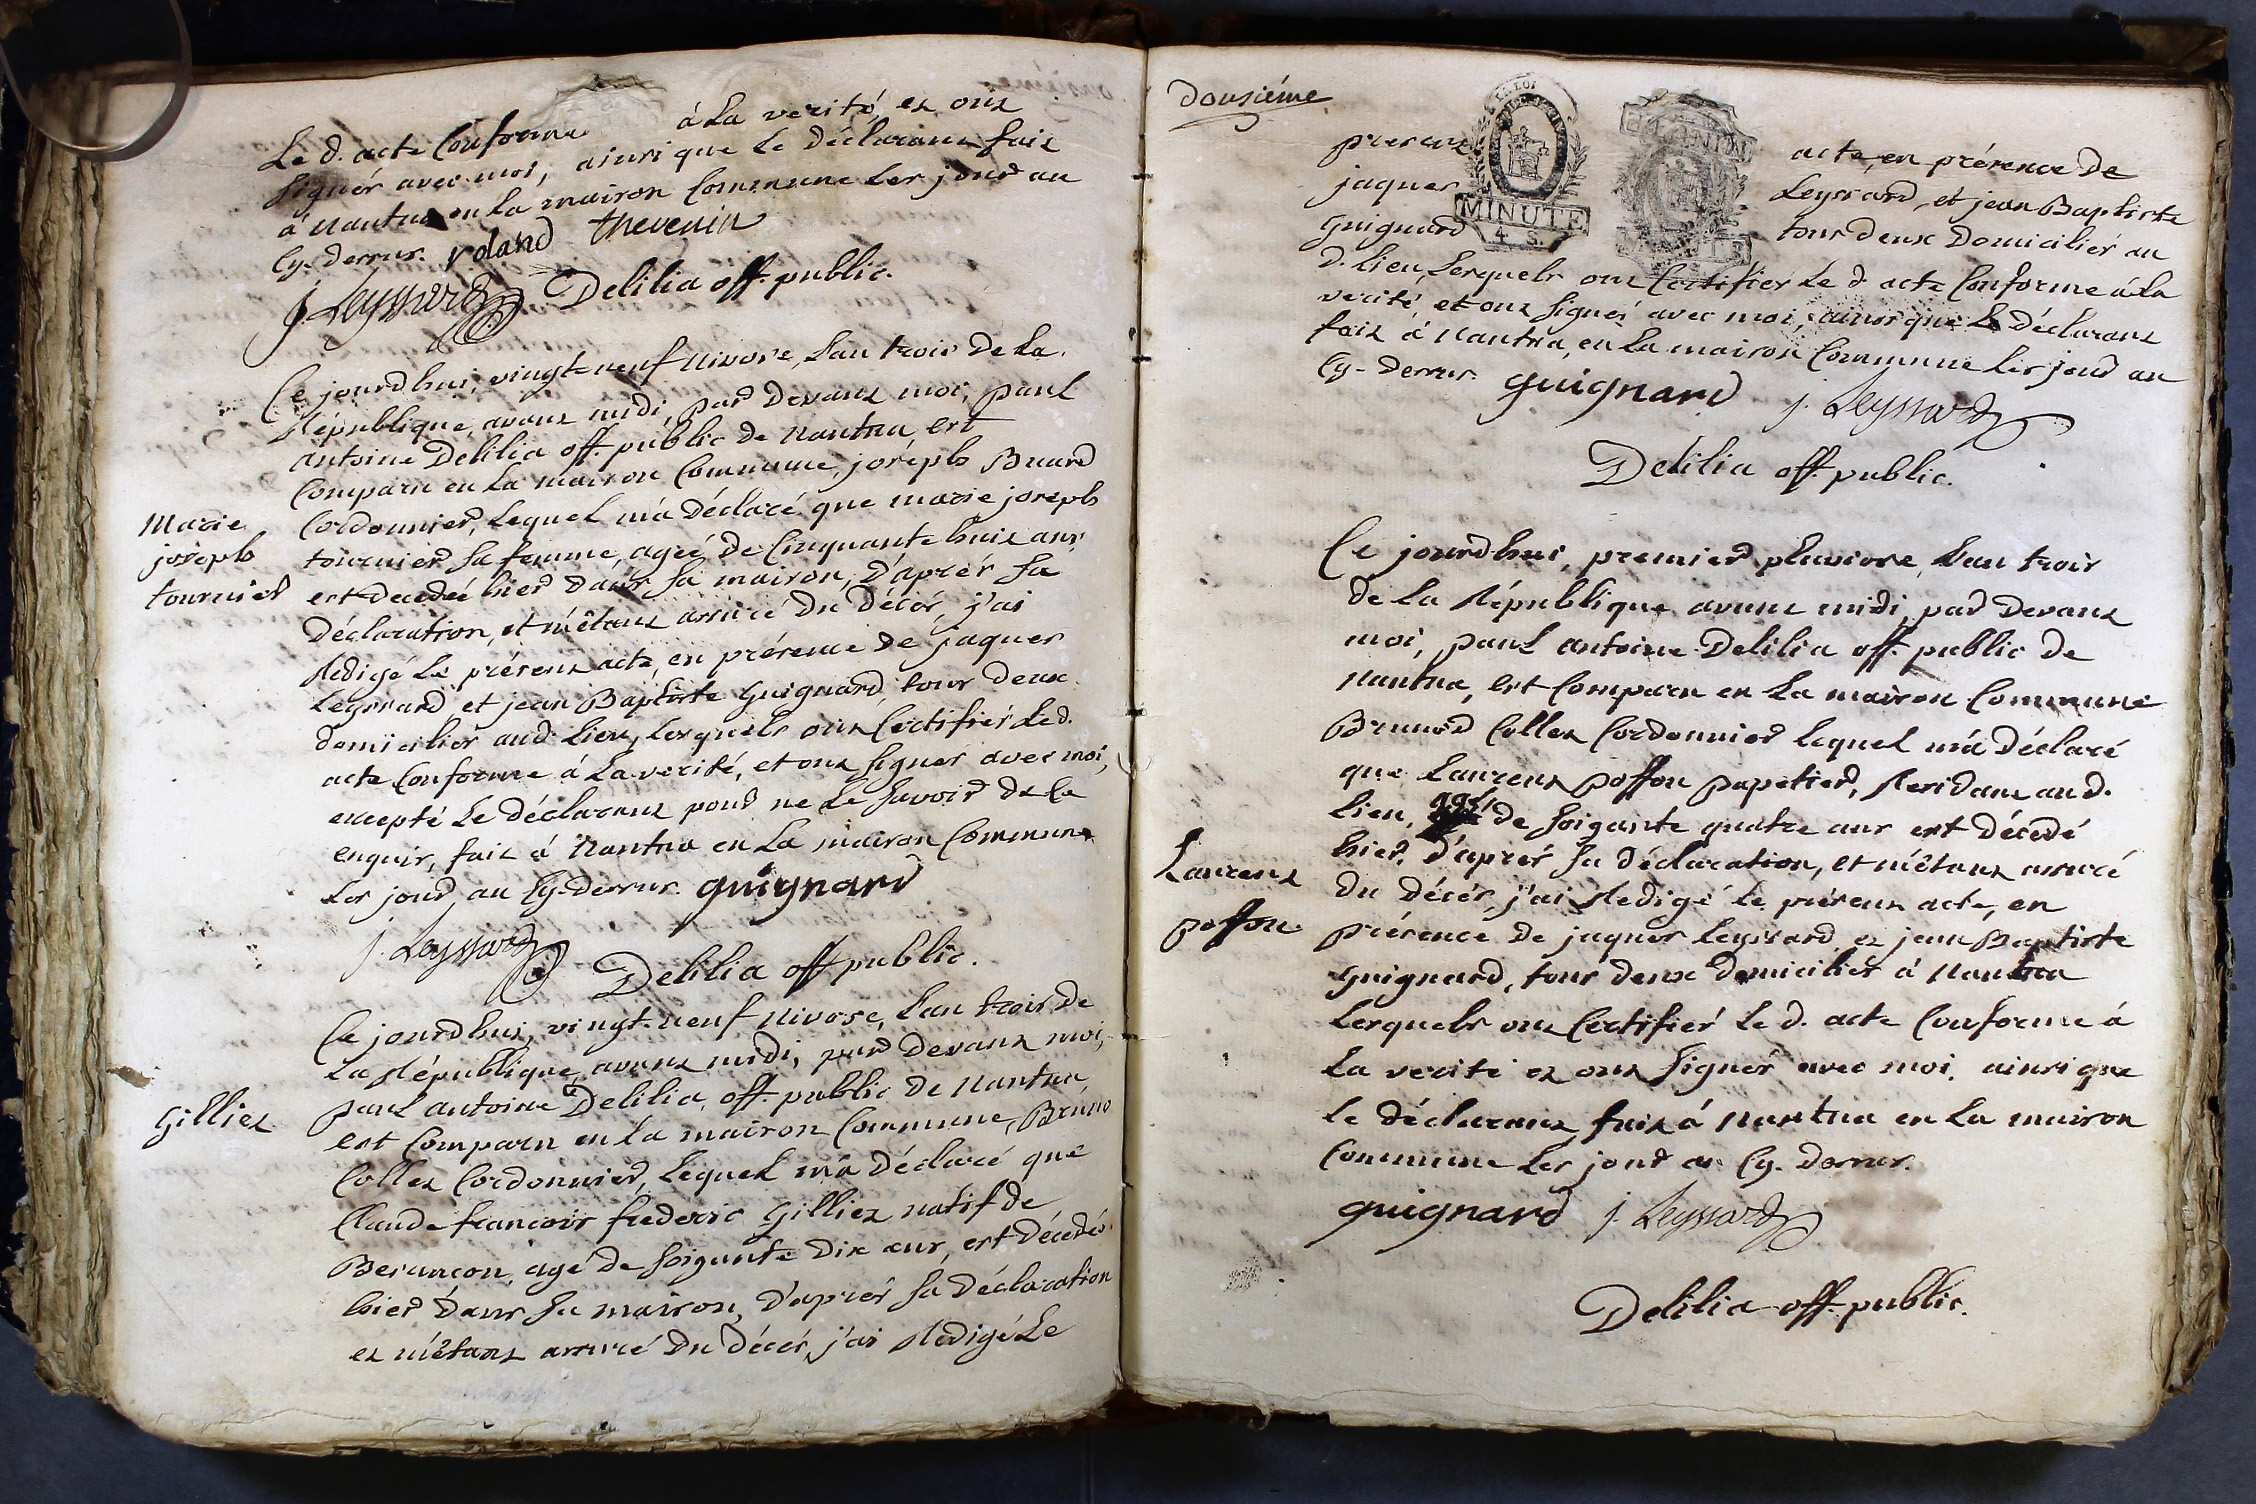 Le d. acte Conforme à La verité, et ont
signés avec moi, ainsi que Le déclarant fait
à Nantua en La maison Commune Les jour au
Cy-dessus. roland thevenin
j. Leyssard Delilia off. public.
Ce jourdhui, vingt neuf Nivose, L'an trois De La
République, avant midi, par Devant moi, paul
antoine Delilia off. public de Nantua, est
Comparu en La maison Commune, joseph Buard
Cordonnier, Lequel m'a Déclaré que marie joseph
tournier Sa femme, ageé De Cinquante huit ans
est decedeé hier Dans Sa maison, D'après Sa
Déclaration, et m'étant assuré Du Décés, j'ai
Redigé Le présent acte, en présence De jaques
Leyssard et jean Baptiste Guignard, tous Deux
domiciliés aud. Lieu, Lesquels ont Certifiés Le d.
acte Conforme à La verité, et ont signés avec moi,
excepté Le déclarant pour ne Le Savoir De Ce
enquis, fait à Nantua en La maison Commune
Les jour, au Cy-dessus. guignard
j. Leyssard Delilia off public.
Marie
joseph
tournier
Ce jourdhui, vingt-neuf Nivose, L'an trois De
La République, avant midi, par Devant moi,
paul antoine Delilia, off. public de Nantua,
est Comparu en La maison Commune, Bruno
Collet Cordonnier, Lequel m'a Déclaré que
Claude francois frederic Gilliet natif de
Besancon, agé De Soigante Dix ans, est Décedé
hier Dans Sa maison, D'après Sa Déclaration
et m'étant assuré Du Décés, j'ai Redigé Le
Gilliet
Dousiéme
present acte, en présence De
jaques Leyssard, et jean Baptiste
Guignard tous Deux Domiciliés au
D. Lieu, Lesquels ont Certifiés Le d. acte Conforme à La
verité, et ont signés avec moi, ainsi que Le Déclarant
fait à Nantua, en La maison Commune Les jour au
Cy-dessus. guignard j. Leyssard
Delilia off. public.
LA LOI
MINUTE
4. S.
Ce jourdhui, premier pluviose, L'an trois
De La République avant midi, par Devant
moi, paul antoine Delilia off. public De
Nantua, est Comparu en La maison Commune
Brunod Collet Cordonnier Lequel m'a Déclaré
que Laurent poffon papetier, Residant au d.
Lieu, agé de Soigante quatre ans est Décedé
hier, D'après Sa Déclaration, et m'étant assuré
Du Décés, j'ai Redigé Le présent acte, en
présence De jaques Leyssard et jean Baptiste
Guignard, tous Deux Domiciliés à Nantua
Lesquels ont Certifiés Le d. acte Conforme à
La verité et ont signés avec moi, ainsi que
Le déclarant, fait à Nantua en La maison
Commune Les jour au Cy-dessus.
guignard j. Leyssard
Delilia off. public.
Laurent
poffon